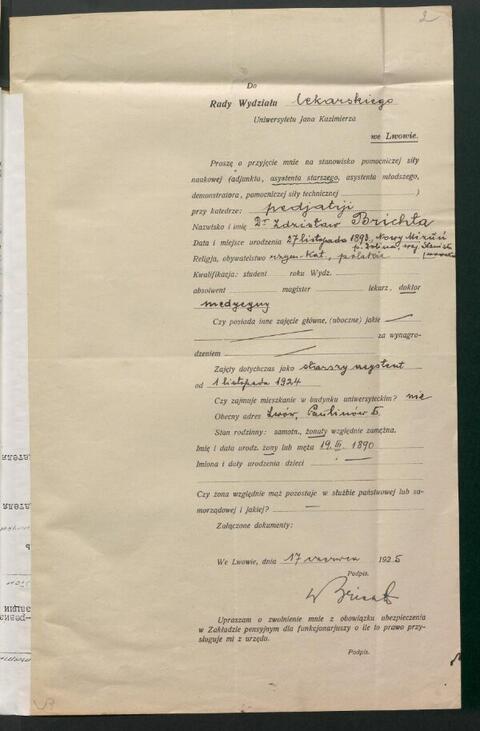 2
Do
Rady Wydziału lekarskiego
Uniwersytetu Jana Kazimierza
we Lwowie.
Proszę o przyjęcie mnie na stanowisko pomocniczej siły
naukowej (adjunkta, asystenta starszego, asystenta młodszego,
demonstratora, pomocniczej siły technicznej )
przy katedrze: pedjatrji
Nazwisko i imię Dr Zdzisław Brichta
Data i miejsce urodzenia 27 listopada 1893, Nowy Mizuń
p. Dolina, woj. Stanisła
Religja, obywatelstwo rzym-kat., polskie
Kwalifikacja: student roku Wydz.
absolwent magister lekarz, doktor
medycyny
Czy posiada inne zajęcie główne, (uboczne) jakie —
za wynagro-
dzeniem —
Zajęty dotychczas jako starszy asystent
od 1 listopada 1924
Czy zajmuje mieszkanie w budynku uniwersyteckim? nie
Obecny adres Lwów, Paulinów
Stan rodzinny: samotn., żonaty względnie zamężna.
Imię i data urodz. żony lub męża 19. III. 1890
Imiona i daty urodzenia dzieci —
Czy żona względnie mąż pozostaje w służbie państwowej lub sa-
morządowej i jakiej? —
Załączone dokumenty:
We Lwowie, dnia 17 czerwca 1925
Podpis.
Upraszam o zwolnienie mnie z obowiązku ubezpieczenia
w Zakładzie pensyjnym dla funkcjonarjuszy o ile to prawo przy-
sługuje mi z urzędu.
Podpis.